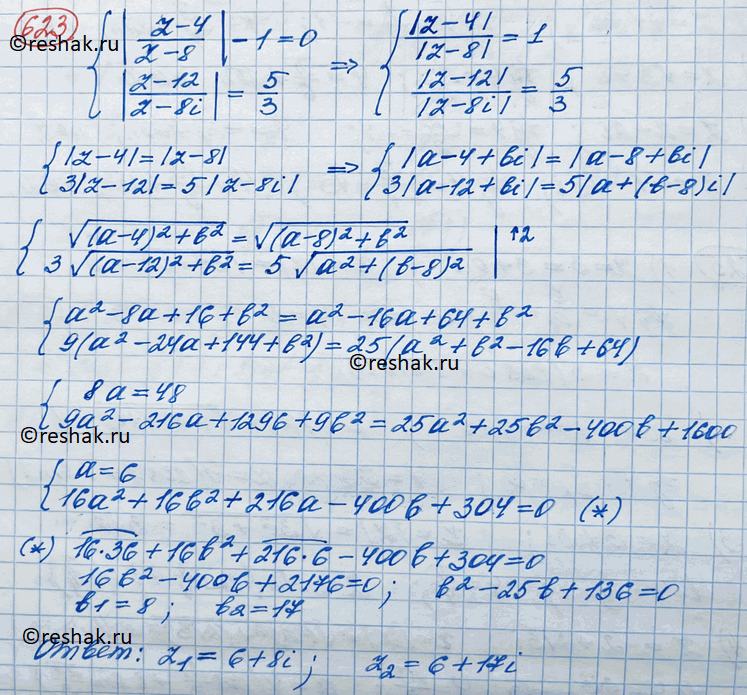 623
©reshak.ru
{ |z-4/z-8| - 1 = 0 ⇒ { |z-4|/|z-8| = 1
{ |z-12/z-8i| = 5/3 { |z-12|/|z-8i| = 5/3
{ |z-4| = |z-8| ⇒ { |a-4+bi| = |a-8+bi|
{ 3|z-12| = 5|z-8i| { 3|a-12+bi| = 5|a+(b-8)i|
{ √((a-4)²+b²) = √((a-8)²+b²) | ↑2
{ 3√((a-12)²+b²) = 5√(a²+(b-8)²)
{ a²-8a+16+b² = a²-16a+64+b²
{ 9(a²-24a+144+b²) = 25(a²+b²-16b+64)
©reshak.ru
{ 8a=48
{ 9a²-216a+1296+9b² = 25a²+25b²-400b+1600
©reshak.ru
{ a=6
{ 16a²+16b²+216a-400b+304=0 (*)
(*) 16·36+16b²+216·6-400b+304=0
16b²-400b+2176=0; b²-25b+136=0
b1=8; b2=17
©reshak.ru
Ответ: z₁=6+8i; z₂=6+17i